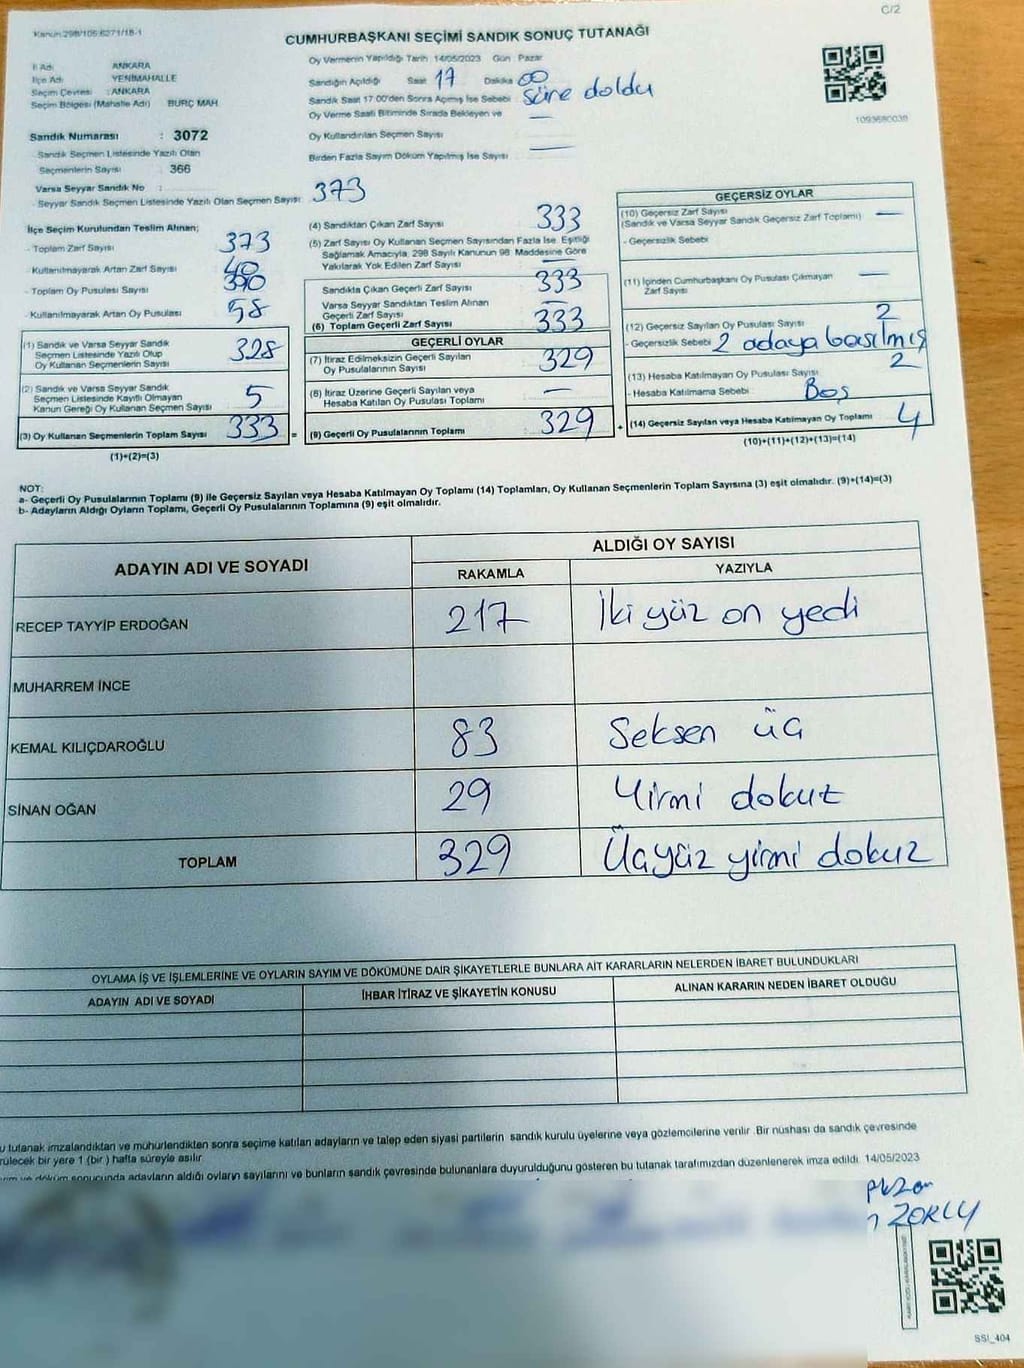 C/2
Kanun:298/106:6271/18-1
CUMHURBAŞKANI SEÇİMİ SANDIK SONUÇ TUTANAĞI
İl Adı ANKARA
İlçe Adı YENİMAHALLE
Seçim Çevresi : ANKARA
Seçim Bölgesi (Mahalle Adı) BURÇ MAH.
Sandık Numarası : 3072
- Sandık Seçmen Listesinde Yazılı Olan
Seçmenlerin Sayısı : 366
Varsa Seyyar Sandık No :
- Seyyar Sandık Seçmen Listesinde Yazılı Olan Seçmen Sayısı 373
Oy Vermenin Yapıldığı Tarih 14/05/2023 Gün : Pazar
Sandığın Açıldığı Saat 17 Dakika 00
Sandık Saat 17:00'den Sonra Açımış İse Sebebi süre doldu
Oy Verme Saati Bitiminde Sırada Bekleyen ve —
Oy Kullandırılan Seçmen Sayısı
Birden Fazla Sayım Döküm Yapılmış İse Sayısı —
1093680039
İlçe Seçim Kurulundan Teslim Alınan;
- Toplam Zarf Sayısı 373
- Kullanılmayarak Artan Zarf Sayısı 40
- Toplam Oy Pusulası Sayısı
- Kullanılmayarak Artan Oy Pusulası 58
(1) Sandık ve Varsa Seyyar Sandık
Seçmen Listesinde Yazılı Olup
Oy Kullanan Seçmenlerin Sayısı 328
(2) Sandık ve Varsa Seyyar Sandık
Seçmen Listesinde Kayıtlı Olmayan
Kanun Gereği Oy Kullanan Seçmen Sayısı 5
(3) Oy Kullanan Seçmenlerin Toplam Sayısı 333 =
(1)+(2)=(3)
(4) Sandıktan Çıkan Zarf Sayısı 333
(5) Zarf Sayısı Oy Kullanan Seçmen Sayısından Fazla İse, Eşitliği
Sağlamak Amacıyla, 298 Sayılı Kanunun 98. Maddesine Göre
Yakılarak Yok Edilen Zarf Sayısı —
Sandıkta Çıkan Geçerli Zarf Sayısı 333
Varsa Seyyar Sandıktan Teslim Alınan
Geçerli Zarf Sayısı —
(6) Toplam Geçerli Zarf Sayısı 333
GEÇERLİ OYLAR
(7) İtiraz Edilmeksizin Geçerli Sayılan
Oy Pusulalarının Sayısı 329
(8) İtiraz Üzerine Geçerli Sayılan veya
Hesaba Katılan Oy Pusulası Toplamı —
(9) Geçerli Oy Pusulalarının Toplamı 329 +
GEÇERSİZ OYLAR
(10) Geçersiz Zarf Sayısı —
(Sandık ve Varsa Seyyar Sandık Geçersiz Zarf Toplamı)
- Geçersizlik Sebebi
(11) İçinden Cumhurbaşkanı Oy Pusulası Çıkmayan —
Zarf Sayısı
(12) Geçersiz Sayılan Oy Pusulası Sayısı 2
- Geçersizlik Sebebi 2 adaya basılmış
(13) Hesaba Katılmayan Oy Pusulası Sayısı 2
- Hesaba Katılmama Sebebi Boş
(14) Geçersiz Sayılan veya Hesaba Katılmayan Oy Toplamı 4
(10)+(11)+(12)+(13)=(14)
NOT:
a- Geçerli Oy Pusulalarının Toplamı (9) ile Geçersiz Sayılan veya Hesaba Katılmayan Oy Toplamı (14) Toplamları, Oy Kullanan Seçmenlerin Toplam Sayısına (3) eşit olmalıdır. (9)+(14)=(3)
b- Adayların Aldığı Oyların Toplamı, Geçerli Oy Pusulalarının Toplamına (9) eşit olmalıdır.
ADAYIN ADI VE SOYADI ALDIĞI OY SAYISI
RAKAMLA YAZIYLA
RECEP TAYYİP ERDOĞAN 217 İki yüz on yedi
MUHARREM İNCE
KEMAL KILIÇDAROĞLU 83 Seksen üç
SİNAN OĞAN 29 Yirmi dokuz
TOPLAM 329 Üçyüz yirmi dokuz
OYLAMA İŞ VE İŞLEMLERİNE VE OYLARIN SAYIM VE DÖKÜMÜNE DAİR ŞİKAYETLERLE BUNLARA AİT KARARLARIN NELERDEN İBARET BULUNDUKLARI
ADAYIN ADI VE SOYADI İHBAR İTİRAZ VE ŞİKAYETİN KONUSU ALINAN KARARIN NEDEN İBARET OLDUĞU
u tutanak imzalandıktan ve mühürlendikten sonra seçime katılan adayların ve talep eden siyasi partilerin sandık kurulu üyelerine veya gözlemcilerine verilir. Bir nüshası da sandık çevresinde
rülecek bir yere 1 (bir) hafta süreyle asılır.
yım ve döküm sonucunda adayların aldığı oyların sayılarını ve bunların sandık çevresinde bulunanlara duyurulduğunu gösteren bu tutanak tarafımızdan düzenlenerek imza edildi. 14/05/2023
ZORLU
SSI_404